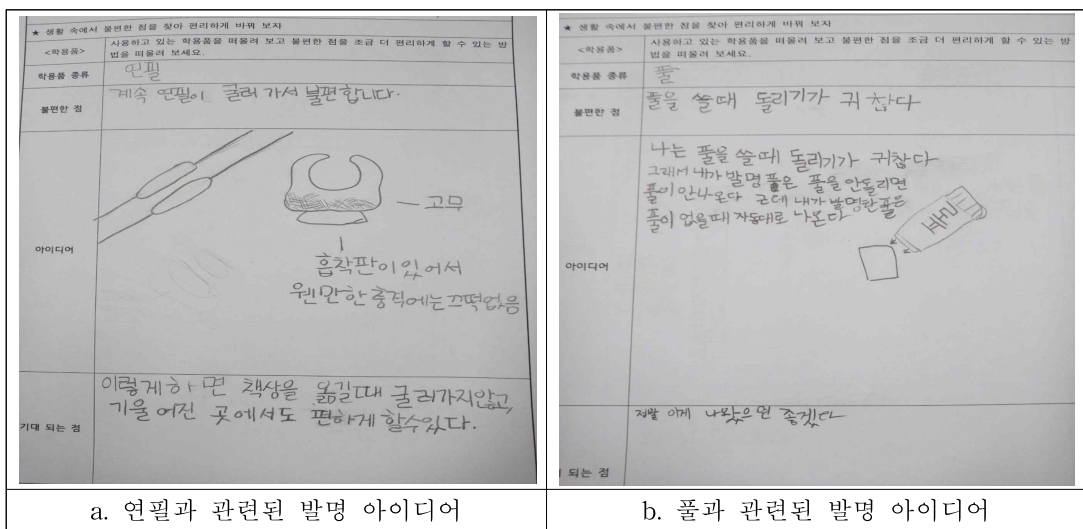 ★ 생활 속에서 불편한 점을 찾아 편리하게 바꿔 보자
<학용품>
사용하고 있는 학용품을 떠올려 보고 불편한 점을 조금 더 편리하게 할 수 있는 방
법을 떠올려 보세요.
학용품 종류
연필
불편한 점
계속 연필이 굴러 가서 불편합니다.
아이디어
고무
흡착판이 있어서
웬만한 충격에는 끄떡없음
기대 되는 점
이렇게 하면 책상을 옮길때 굴러가지않고,
기울어진 곳에서도 편하게 할수있다.
a. 연필과 관련된 발명 아이디어
★ 생활 속에서 불편한 점을 찾아 편리하게 바꿔 보자
<학용품>
사용하고 있는 학용품을 떠올려 보고 불편한 점을 조금 더 편리하게 할 수 있는 방
법을 떠올려 보세요.
학용품 종류
풀
불편한 점
풀을 쓸때 돌리기가 귀찮다
아이디어
나는 풀을 쓸때 돌리기가 귀찮다
그래서 내가 발명 풀은 풀을 안돌리면
풀이 안나온다 근데 내가 발명한 풀은
풀이 없을때 자동대로 나온다
되는 점
제발 이게 나왔으면 좋겠다
b. 풀과 관련된 발명 아이디어